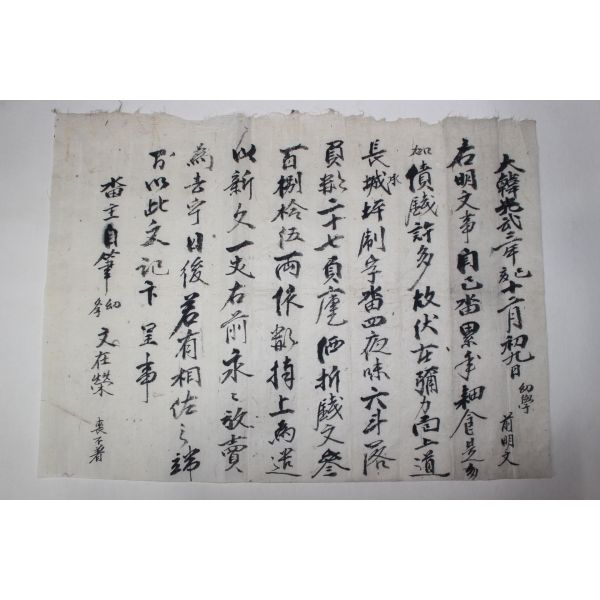 大韓光武三年己亥十二月初九日 幼學 前明文
右明文事自己畓累年耕食是多
加債錢許多故伏在彌力面上道
長城坪制字畓四夜味六斗落
負數二十七負庫価折錢文叄
百捌拾伍兩依數捧上爲遣
以新文一丈右前永永放賣
爲去乎日後若有相佐之端
以此文記卞呈事
畓主自筆 幼學 文在榮 喪不着